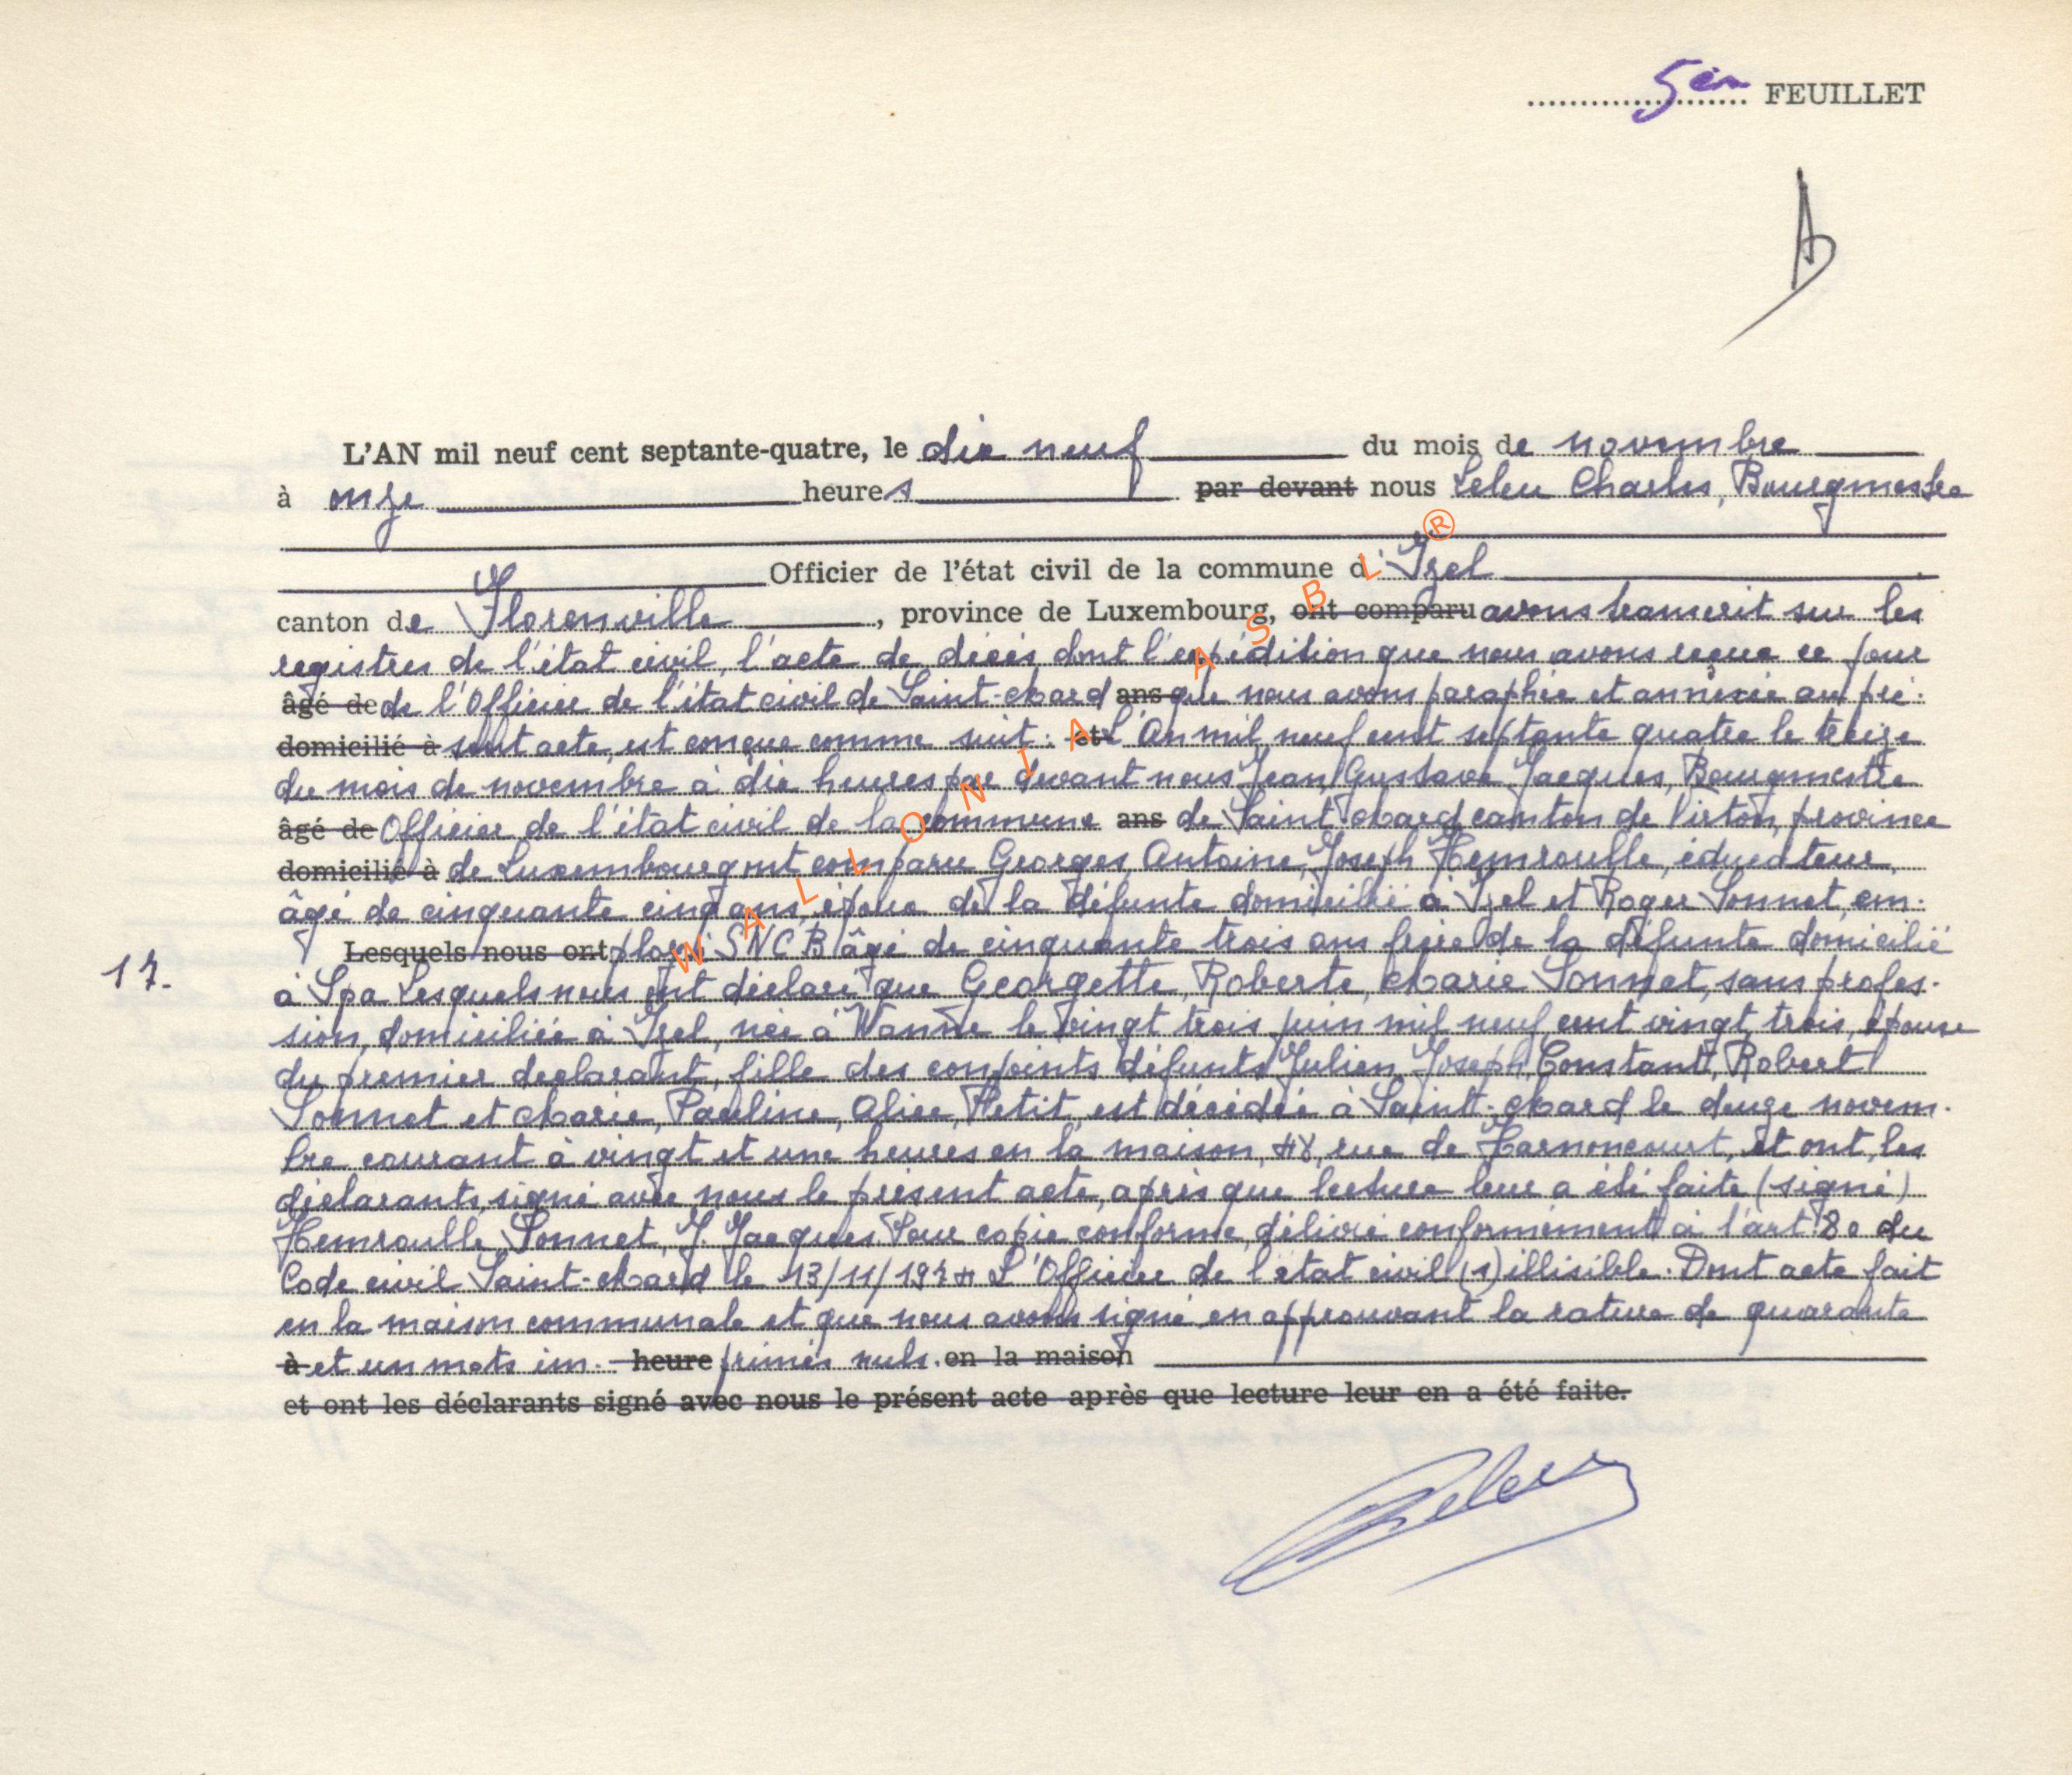 5èm FEUILLET
L'AN mil neuf cent septante-quatre, le dix neuf du mois de novembre
à onze heures par devant nous Leleu Charles, Bourgmestre
Officier de l'état civil de la commune d'Izel
canton de Florenville, province de Luxembourg, ont comparu avons transcrit sur les
registres de l'état civil, l'acte de décès dont l'expédition que nous avons reçue ce jour
âgé de de l'Officier de l'état civil de Saint-Mard ans que nous avons paraphée et annexée au pré-
domicilié à sent acte, est conçue comme suit : et L'An mil neuf cent septante quatre le treize
du mois de novembre à dix heures par devant nous Jean, Gustave Jacques, Bourgmestre
âgé de Officier de l'état civil de la commune ans de Saint Mard canton de Virton, province
domicilié à de Luxembourg ont comparu Georges, Antoine, Joseph Hemroulle, éducateur,
âgé de cinquante cinq ans, époux de la défunte domicilié à Izel et Roger Sonnet, em-
Lesquels nous ont ployé SNCB âgé de cinquante trois ans frère de la défunte domicilié
17.
à Spa Lesquels nous ont déclaré que Georgette, Roberte, Marie Sonnet, sans profes-
sion, domiciliée à Izel, née à Wanne le vingt trois juin mil neuf cent vingt trois, épouse
du premier declarant, fille des conjoints défunts Julien, Joseph, Constant, Robert
Sonnet et Marie, Pauline, Alice, Petit, est décédée à Saint-Mard le douze novem-
bre courant à vingt et une heures en la maison, 48, rue de Harnoncourt, et ont, les
déclarants, signé avec nous le présent acte, après que lecture leur a été faite (signé)
Hemroulle, Sonnet, J. Jacques Pour copie conforme, délivré conformément à l'art 80 du
Code civil Saint-Mard le 13/11/1974 L'Officier de l'état civil (s) illisible. Dont acte fait
en la maison communale et que nous avons signé en approuvant la rature de quarante
à et un mots im- heure primés nuls. en la maison
et ont les déclarants signé avec nous le présent acte après que lecture leur en a été faite.
Leleu
WALLONIA ASBL ®